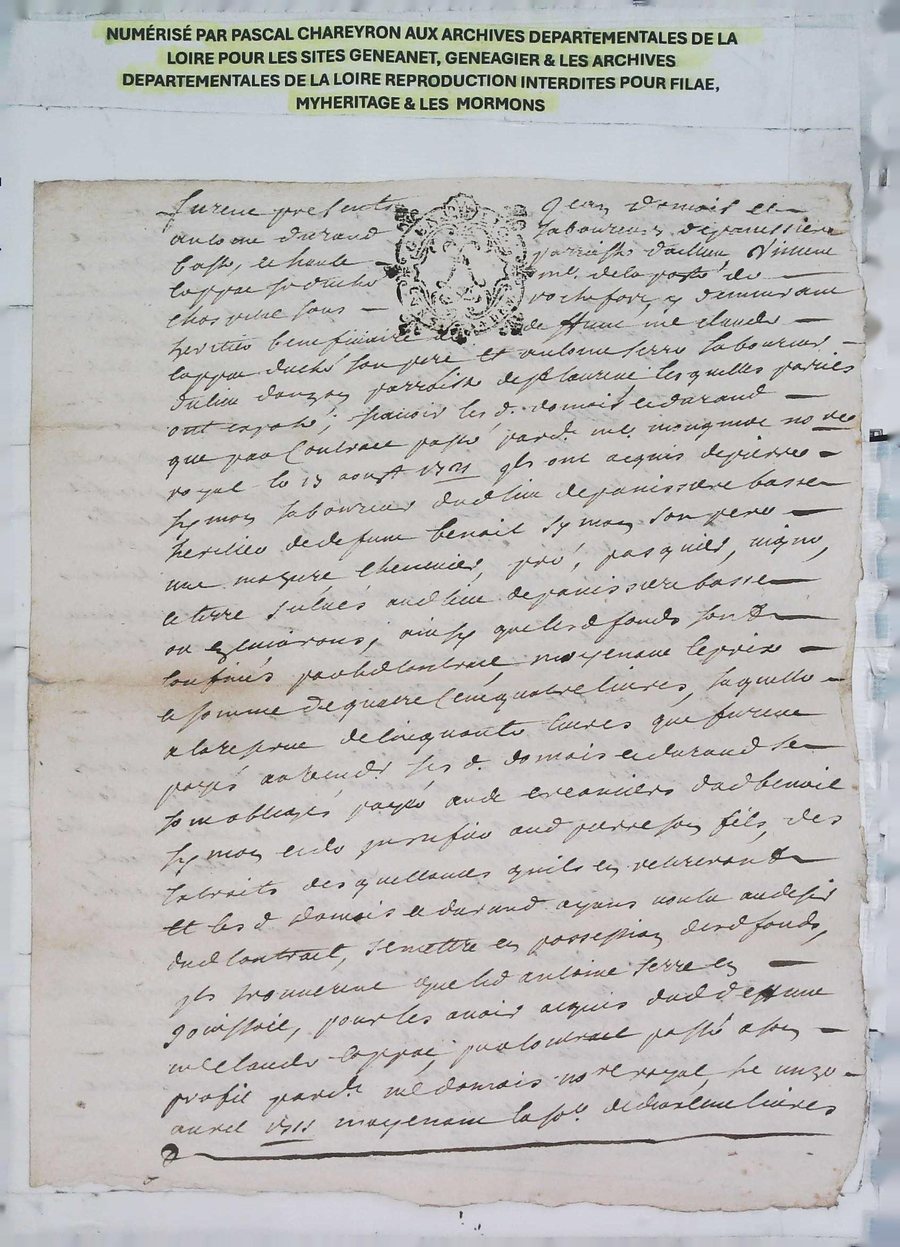 NUMÉRISÉ PAR PASCAL CHAREYRON AUX ARCHIVES DEPARTEMENTALES DE LA
LOIRE POUR LES SITES GENEANET, GENEAGIER & LES ARCHIVES
DEPARTEMENTALES DE LA LOIRE REPRODUCTION INTERDITES POUR FILAE,
MYHERITAGE & LES MORMONS
furent presents Jean Domois et
antoine durand laboureurs de panissiere
basse, et haute parroisse dailleu, Vincent
coppac me. de la poste de
sous rochefort, y demeurant
heritier beneficiaire de deffunt me claude
coppac duché son pere et antoine serre laboureur
du lieu parroisse de st laurent lesquelles parties
ont exposé; scavoir les d. domois et durand
que par Contract passé pard. me. nore
royal le 13 aoust 1721 ils ont acquis de pierre
symon laboureur dudlieu de panissiere basse
heritier de defunt benoit symon son pere
une mazure, chenevier, pré, pasquier, vigne,
et terre situés audlieu de panissiere basse
ou es environs, ainsy que lesd fonds sont
confinés par led contract, moyenant le prix
et somme de quatre cent quatre livres, laquelle
a la reserve de cinquante livres que furent
payés les d. domois et durand se
sont obligés payer aux creanciers dud benoit
symon et de justifier aud pierre son fils, des
extraits des quittances quils en retireront
et les d domois et durand ayant voulu au desir
dud contract, se mettre en possession desd fonds,
ils trouverent que led antoine serre en
jouissoit, pour les avoir acquis dud deffunt
me claude coppac, par contract passé a son
profit pard. me domois nore royal le unze
avril 1711 moyenant la so.e de livres